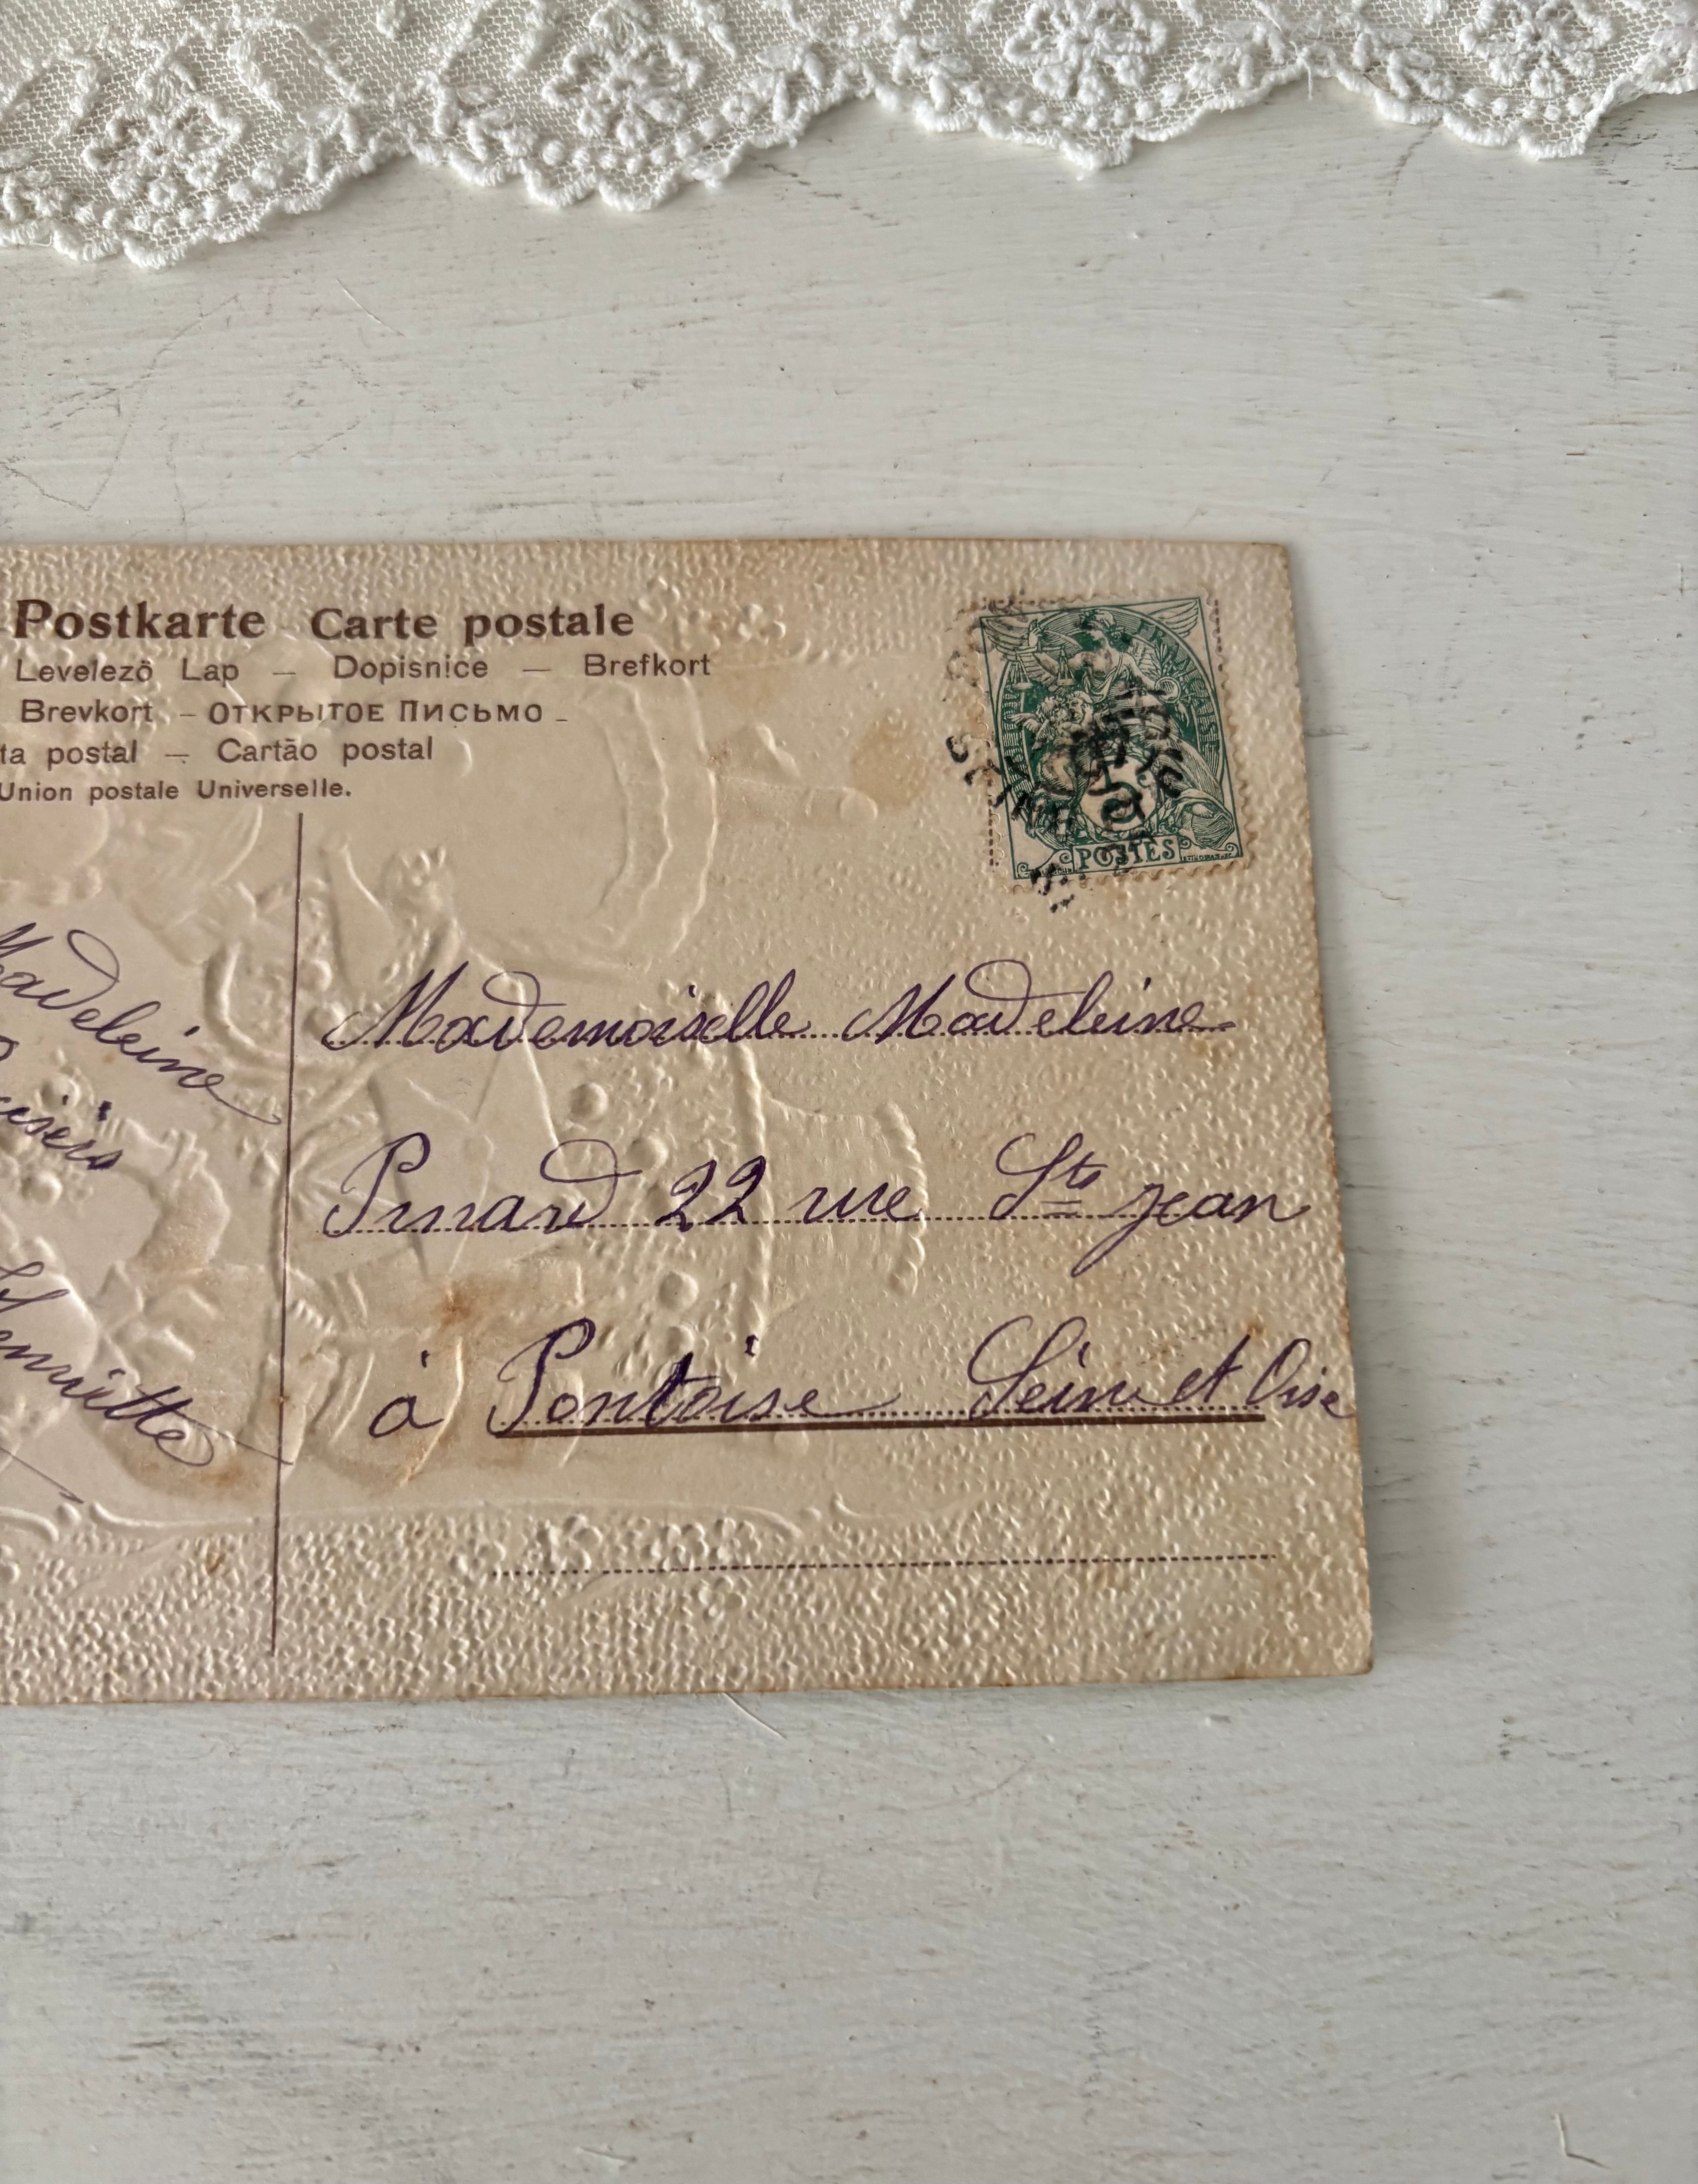 Postkarte Carte postale
Levelező Lap — Dopisnice — Brefkort
Brevkort — ОТКРЫТОЕ ПИСЬМО —
ta postal — Cartão postal
Union postale Universelle.
POSTES
5
Madeleine
Mademoiselle Madeleine
Pinard 22 rue St Jean
à Pontoise Seine et Oise